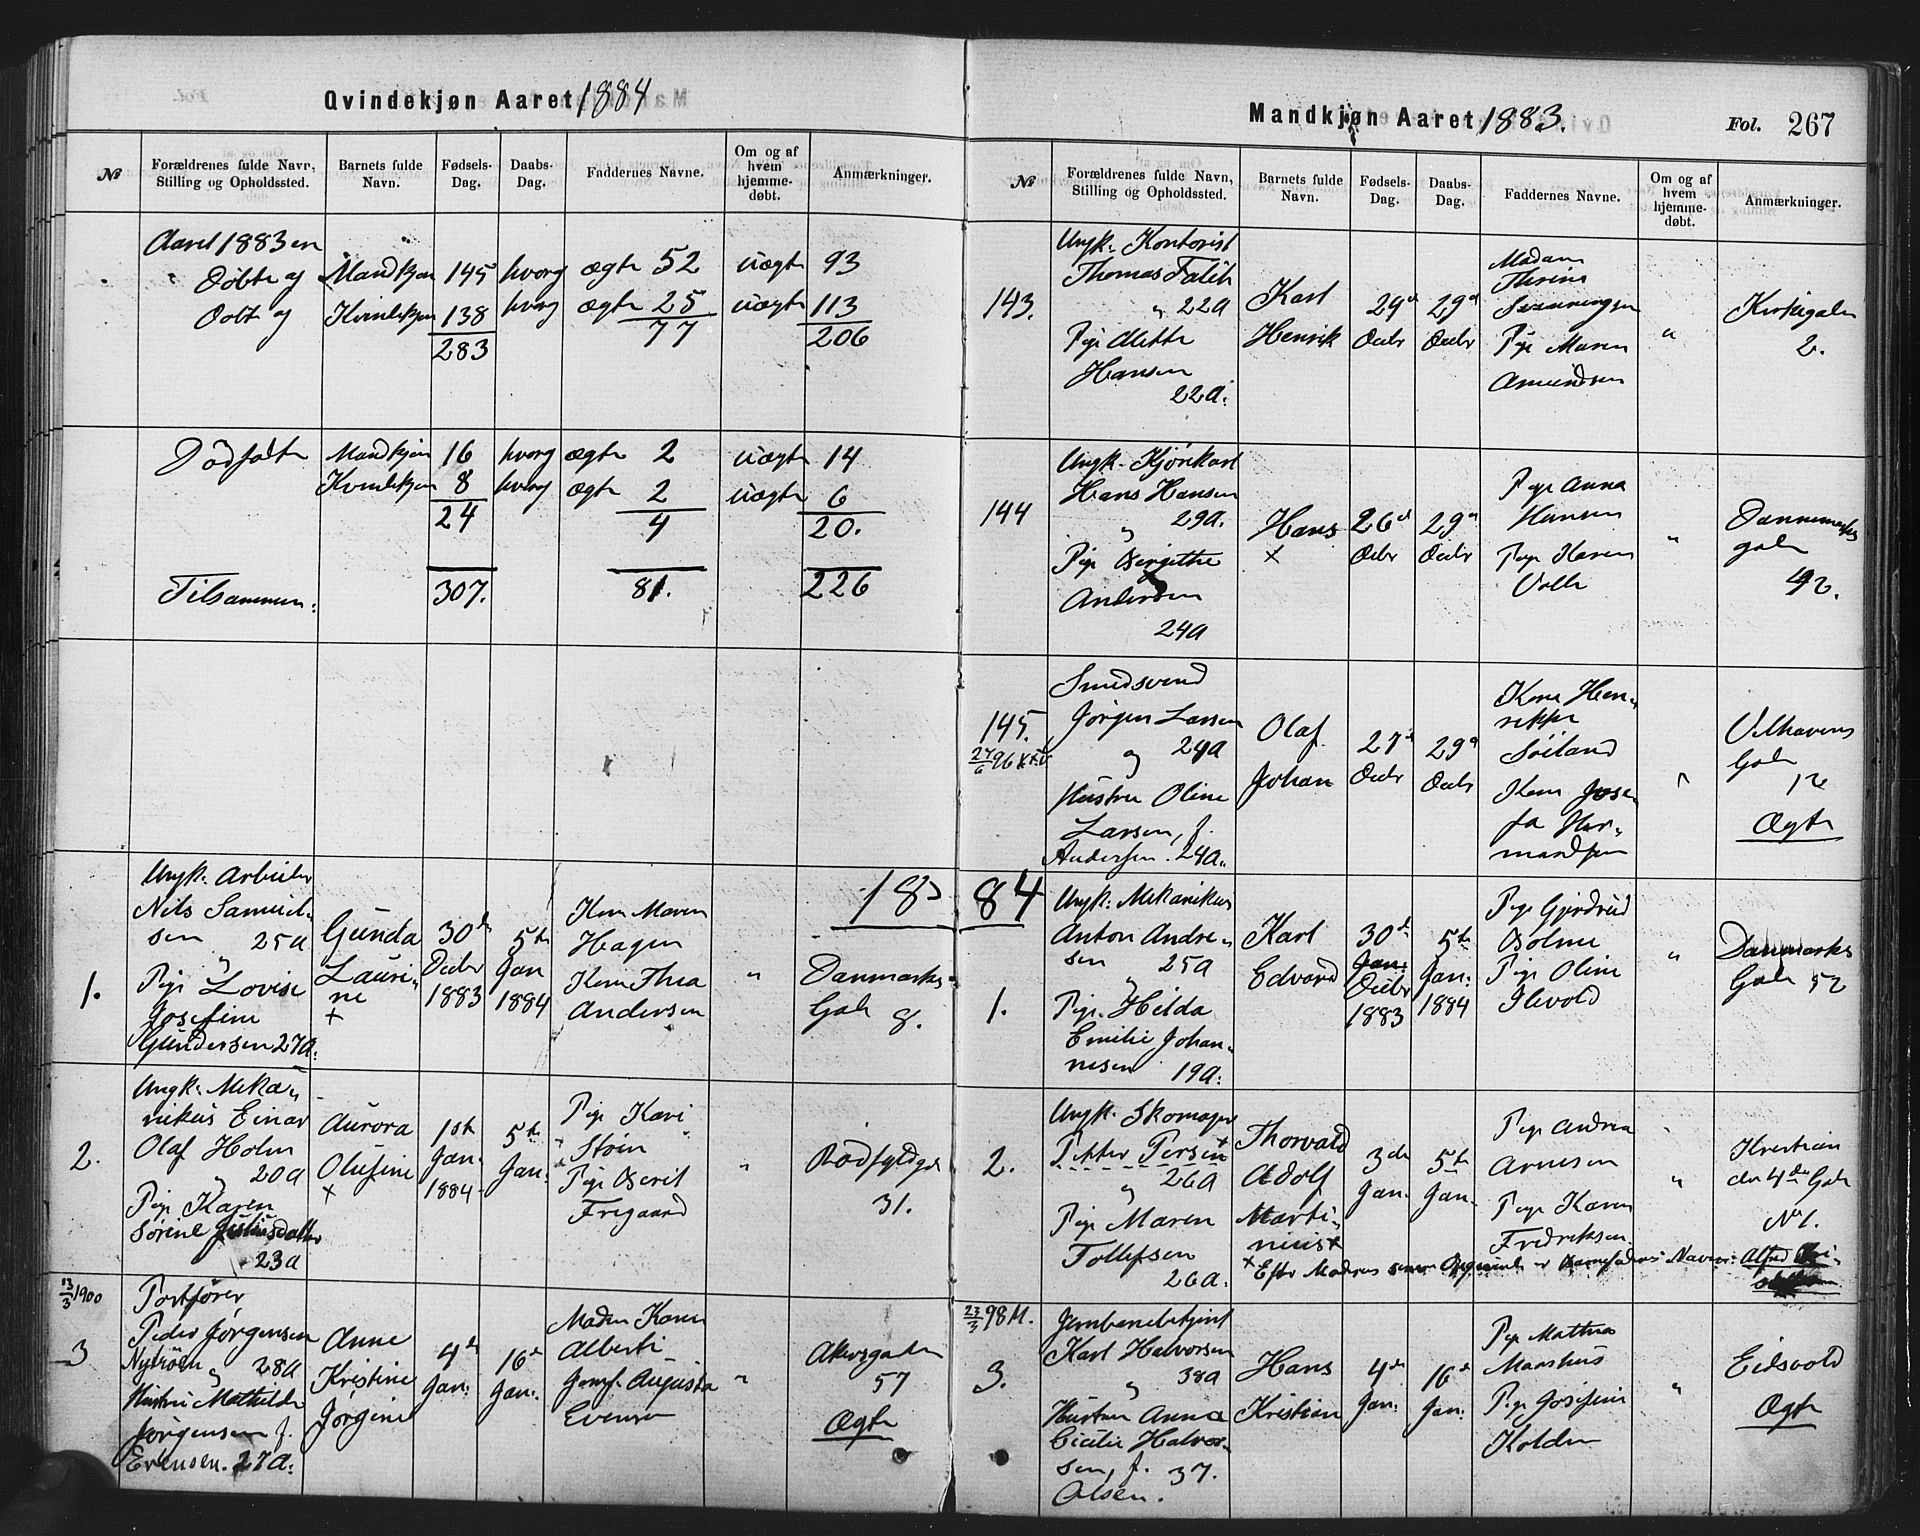 Qvindekjøn Aaret 1884
№
Forældrenes fulde Navn,
Stilling og Opholdssted.
Barnets fulde
Navn.
Fødsels-
Dag.
Daabs-
Dag.
Faddernes Navne.
Om og af
hvem
hjemme-
døbt.
Anmærkninger.
Aaret 1883 er
Døbte af Mandkjøn 145 hvoraf ægte 52 uægte 93
Døbte af Kvindekjøn 138 hvoraf ægte 25 uægte 113
283 77 206
Dødfødte Mandkjøn 16 hvoraf ægte 2 uægte 14
Kvindekjøn 8 hvoraf ægte 2 uægte 6
24 4 20.
Tilsammen: 307. 81. 226
18
1.
Ungk. Arbeider
Nils Samuel-
sen 25a
og
Pige Lovise
Josefine
Gundersen 27a:
Gunda
Lauri-
ne
+
30d
Decbr
1883
5te
Jan
1884
Kone Maren
Hagen
Kone Thea
Andersen
"
Danmarks
Gade
8.
2.
Ungk. Meka-
nikus Einar
Olaf Holm
og 20a
Pige Karen
Sørine Juliusdatter
23a
Aurora
Olufine
+
1ste
Jan.
1884
5te
Jan.
Pige Kari
Støen
Pige Berit
Fregaard
"
Rødfyldgd.
31.
13/3 1900
3
Portfører
Peder Jørgensen
Nyrøen og 28a
Hustru Mathilde
Jørgensen f.
Evensen. 27a:
Anne
Kristine
Jørgine
4d
Jan:
16d
Jan:
Madm Karen
Alberti
Jomf. Augusta
Evensen
"
Akersgaden
57
Ægte
Mandkjøn Aaret 1883.
Fol. 267
№
Forældrenes fulde Navn,
Stilling og Opholdssted.
Barnets fulde
Navn.
Fødsels-
Dag.
Daabs-
Dag.
Faddernes Navne.
Om og af
hvem
hjemme-
døbt.
Anmærkninger.
143.
Ungk. Kontorist
Thomas Falck
og 22a
Pige Alette
Hansen
22a.
Karl
Henrik
29d
Decbr
29d
Decbr
Madam
Thrine
Pige Maren
Amundsen
"
Kirkegaden
2.
144
Ungk. Kjørekarl
Hans Hansen
og 29a.
Pige Birgitte
Andersen
24a
Hans
+
26d
Decbr
29d
Decbr
Pige Anna
Hansen
Pige Karen
Volle
"
Dannemarks
gade
42.
145.
27/6 96
Smedsvend
Jørgen Larsen
og 24a
Hustru Oline
Larsen, f.
Andersen. 24a.
Olaf
Johan
27d
Decbr
29d
Decbr
Kone Hen-
rikke
Søiland
Kone Jose-
fa Her-
mandsen
"
Velhavens
Gade
12
Ægte
84
1.
Ungk. Mekanikus
Anton Andre-
sen 25a
og
Pige. Hilda
Emilie Johan-
nesen 19a.
Karl
Edvard
30d
Jan.
Decbr
1883
5te
Jan:
1884
Pige Gjerdrud
Holme
Pige Oline
Ilevold
"
Danmarks
Gade 52
2.
Ungk. Skomager
Petter Persen+
og 26a
Pige Maren
Tollefsen
26a.
Thorvald
Adolf
Marti-
nius+
3de
Jan.
5te
Jan.
Pige Andrea
Arnesen
Pige Karen
Fredriksen.
"
Kristian
den 4de Gade
No 1.
+ Efter Moderens senere Opgivende er Barnefaderens Navn: Alfred
23/3 98 M.
3.
Jernbanebetjent
Karl Halvorsen
og 38a
Hustru Anna
Cicilie Halvor-
sen, f. 37.
Olsen.
Hans
Kristian
4de
Jan:
16d
Jan:
Pige Mathea
Maashus
Pige Josefine
Kolden
"
Eidsvold
Ægte